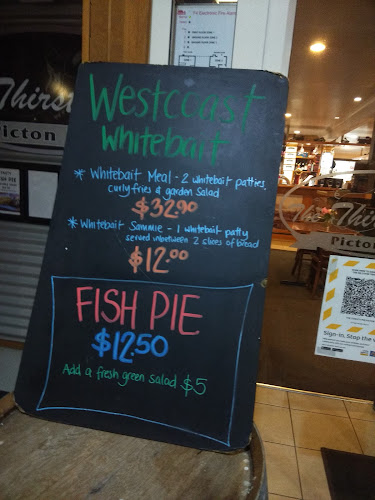 Westcoast
Whitebait
* Whitebait Meal - 2 whitebait patties,
curly fries & garden salad
$32.90
* Whitebait Sammie - 1 whitebait patty
served inbetween 2 slices of bread
$12.00
FISH PIE
$12.50
Add a fresh green salad $5
Thirst
Picton
The Thirst
Picton
Sign-in. Stop the